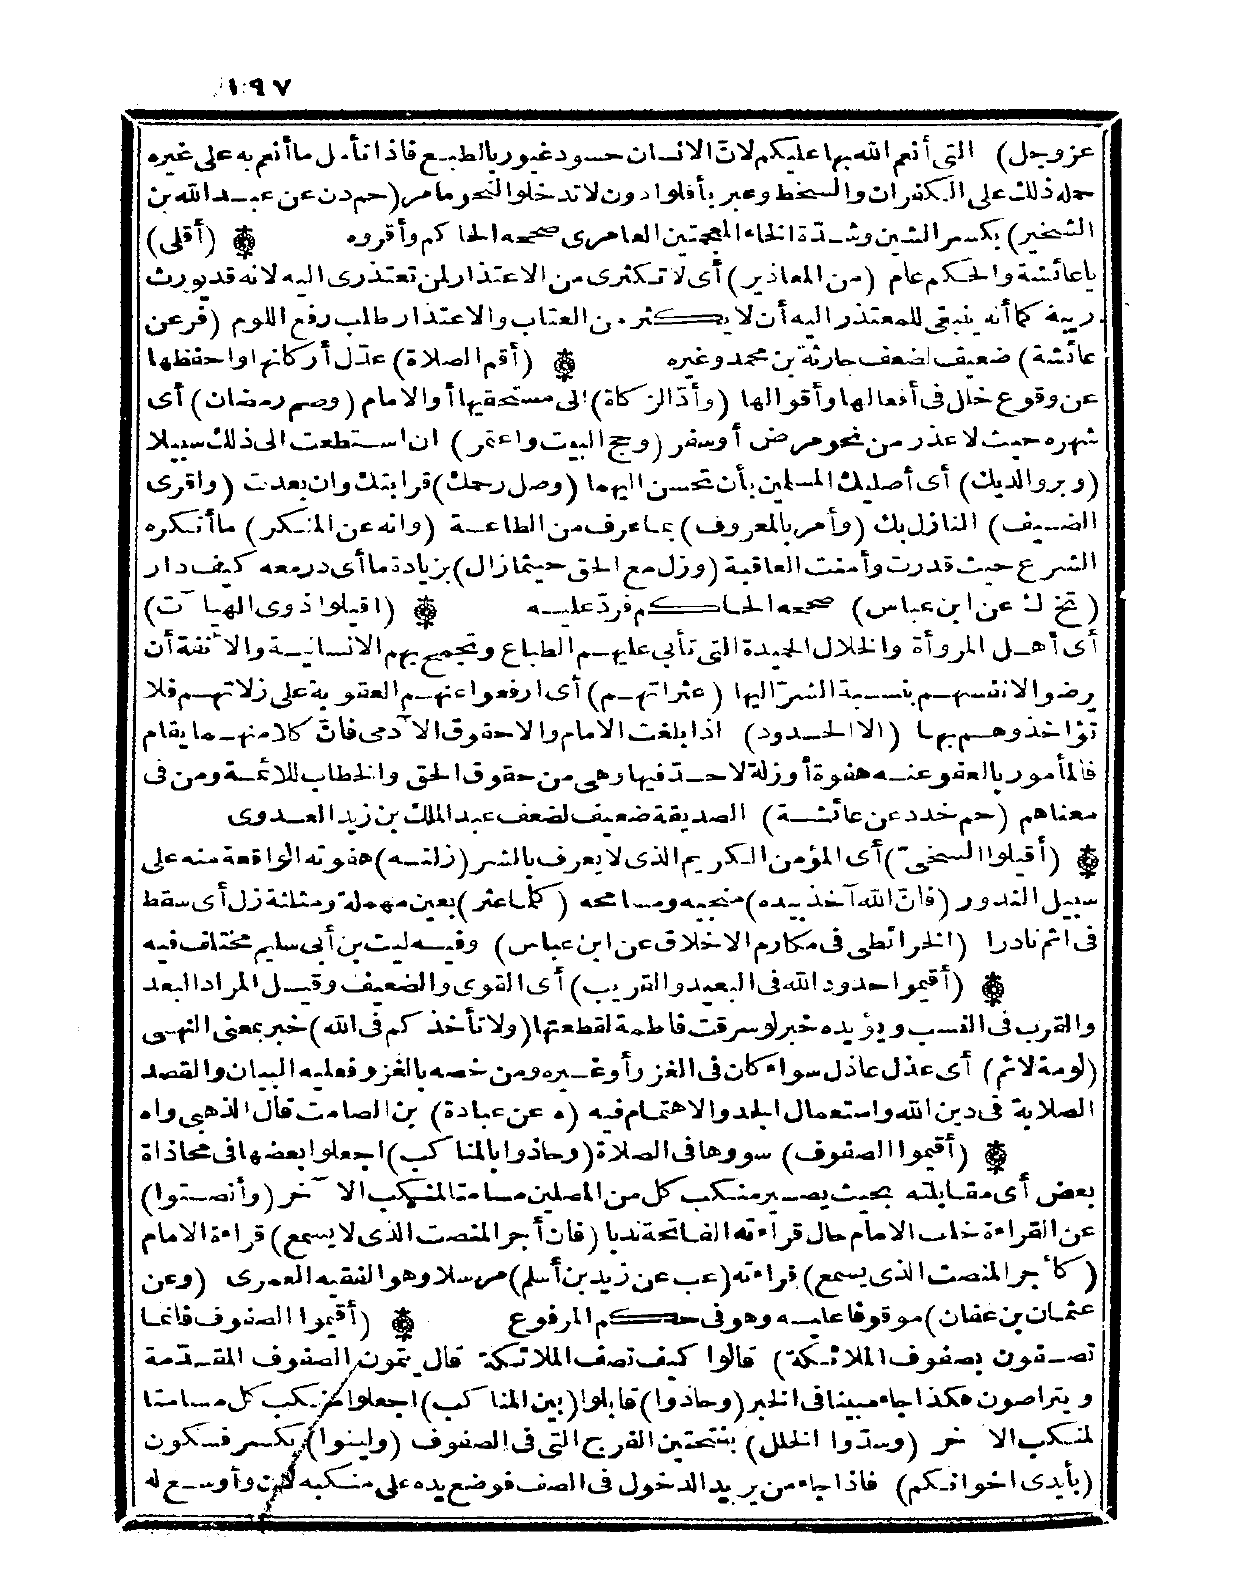 ١٩٧
عز وجل) التى أنعم الله بها عليكم لان الانسان حسود غيور بالطبع فاذا تأمل ما أنعم به على غيره
حمله ذلك على الكفران والسخط وعبر بأقلوا دون لا تدخلوا لنحو ما مر (حم دن عن عبد الله بن
الشخير) بكسر الشين وشدة الخاء المعجمتين العامرى صححه الحاكم وأقروه ۞ (أقلى)
ياعائشة والحكم عام (من المعاذير) أى لا تكثرى من الاعتذار لمن تعتذرى اليه لانه قد يورث
ريبة كما أنه ينبغى للمعتذر اليه أن لا يكثر من العتاب والاعتذار طلب رفع اللوم (فر عن
عائشة) ضعيف لضعف حارثة بن محمد وغيره ۞ (أقم الصلاة) عدّل أركانها واحفظها
عن وقوع خلل فى أفعالها وأقوالها (وأدّ الزكاة) الى مستحقيها أو الامام (وصم رمضان) أى
شهره حيث لا عذر من نحو مرض أو سفر (وحج البيت واعتمر) ان استطعت الى ذلك سبيلا
(وبر والديك) أى أصليك المسلمين بأن تحسن اليهما (وصل رحمك) قرابتك وان بعدت (واقرى
الضيف) النازل بك (وأمر بالمعروف) بما عرف من الطاعة (وانه عن المنكر) ما أنكره
الشرع حيث قدرت وأمنت العاقبة (وزل مع الحق حيثما زال) بزيادة ما أى در معه كيف دار
(تخ ك عن ابن عباس) صححه الحاكم فردّ عليه ۞ (اقيلوا ذوى الهيآت)
أى أهل المروأة والخلال الحميدة التى تأبى عليهم الطباع وتجمح بهم الانسانية والانفة أن
يرضوا لانفسهم بنسبة الشر اليها (عثراتهم) أى ارفعوا عنهم العقوبة على زلاتهم فلا
تؤاخذوهم بها (الا الحدود) اذا بلغت الامام والا حقوق الآدمى فان كلا منهما يقام
فالمأمور بالعفو عنه هفوة أو زلة لا حد فيها وهى من حقوق الحق والخطاب للائمة ومن فى
معناهم (حم خدد عن عائشة) الصديقة ضعيف لضعف عبد الملك بن زيد العدوى
۞ (أقيلوا السخىّ) أى المؤمن الكريم الذى لا يعرف بالشر (زلته) هفوته الواقعة منه على
سبيل الندور (فان الله آخذ بيده) منجيه ومسامحه (كلما عثر) بعين مهملة ومثلثة زل أى سقط
فى اثم نادرا (الخرائطى فى مكارم الاخلاق عن ابن عباس) وفيه ليث بن أبى سليم مختلف فيه
۞ (أقيموا حدود الله فى البعيد والقريب) أى القوى والضعيف وقيل المراد البعد
والقرب فى النسب ويؤيده خبر لو سرقت فاطمة لقطعتها (ولا تأخذكم فى الله) خبر بمعنى النهى
(لومة لائم) أى عذل عاذل سواء كان فى الغزو أو غيره ومن خصه بالغزو فعليه البيان والقصد
الصلابة فى دين الله واستعمال الجد والاهتمام فيه (ه عن عبادة) بن الصامت قال الذهبى واه
۞ (أقيموا الصفوف) سووها فى الصلاة (وحاذوا بالمناكب) اجعلوا بعضها فى محاذاة
بعض أى مقابلته بحيث يصير منكب كل من المصلين مسامتا لمنكب الآخر (وأنصتوا)
عن القراءة خلف الامام حال قراءته الفاتحة ندبا (فان أجر المنصت الذى لا يسمع) قراءة الامام
(كأجر المنصت الذى يسمع) قراءته (عب عن زيد بن أسلم) مرسلا وهو الفقيه العمرى (وعن
عثمان بن عفان) موقوفا عليه وهو فى حكم المرفوع ۞ (أقيموا الصفوف فانما
تصفون بصفوف الملائكة) قالوا كيف تصف الملائكة قال يتمون الصفوف المقدّمة
ويتراصون هكذا جاء مبينا فى الخبر (وحاذوا) قابلوا (بين المناكب) اجعلوا منكب كل مسامتا
لمنكب الآخر (وسدّوا الخلل) بفتحتين الفرج التى فى الصفوف (ولينوا) بكسر فسكون
(بأيدى اخوانكم) فاذا جاء من يريد الدخول فى الصف فوضع يده على منكبه لان وأوسع له